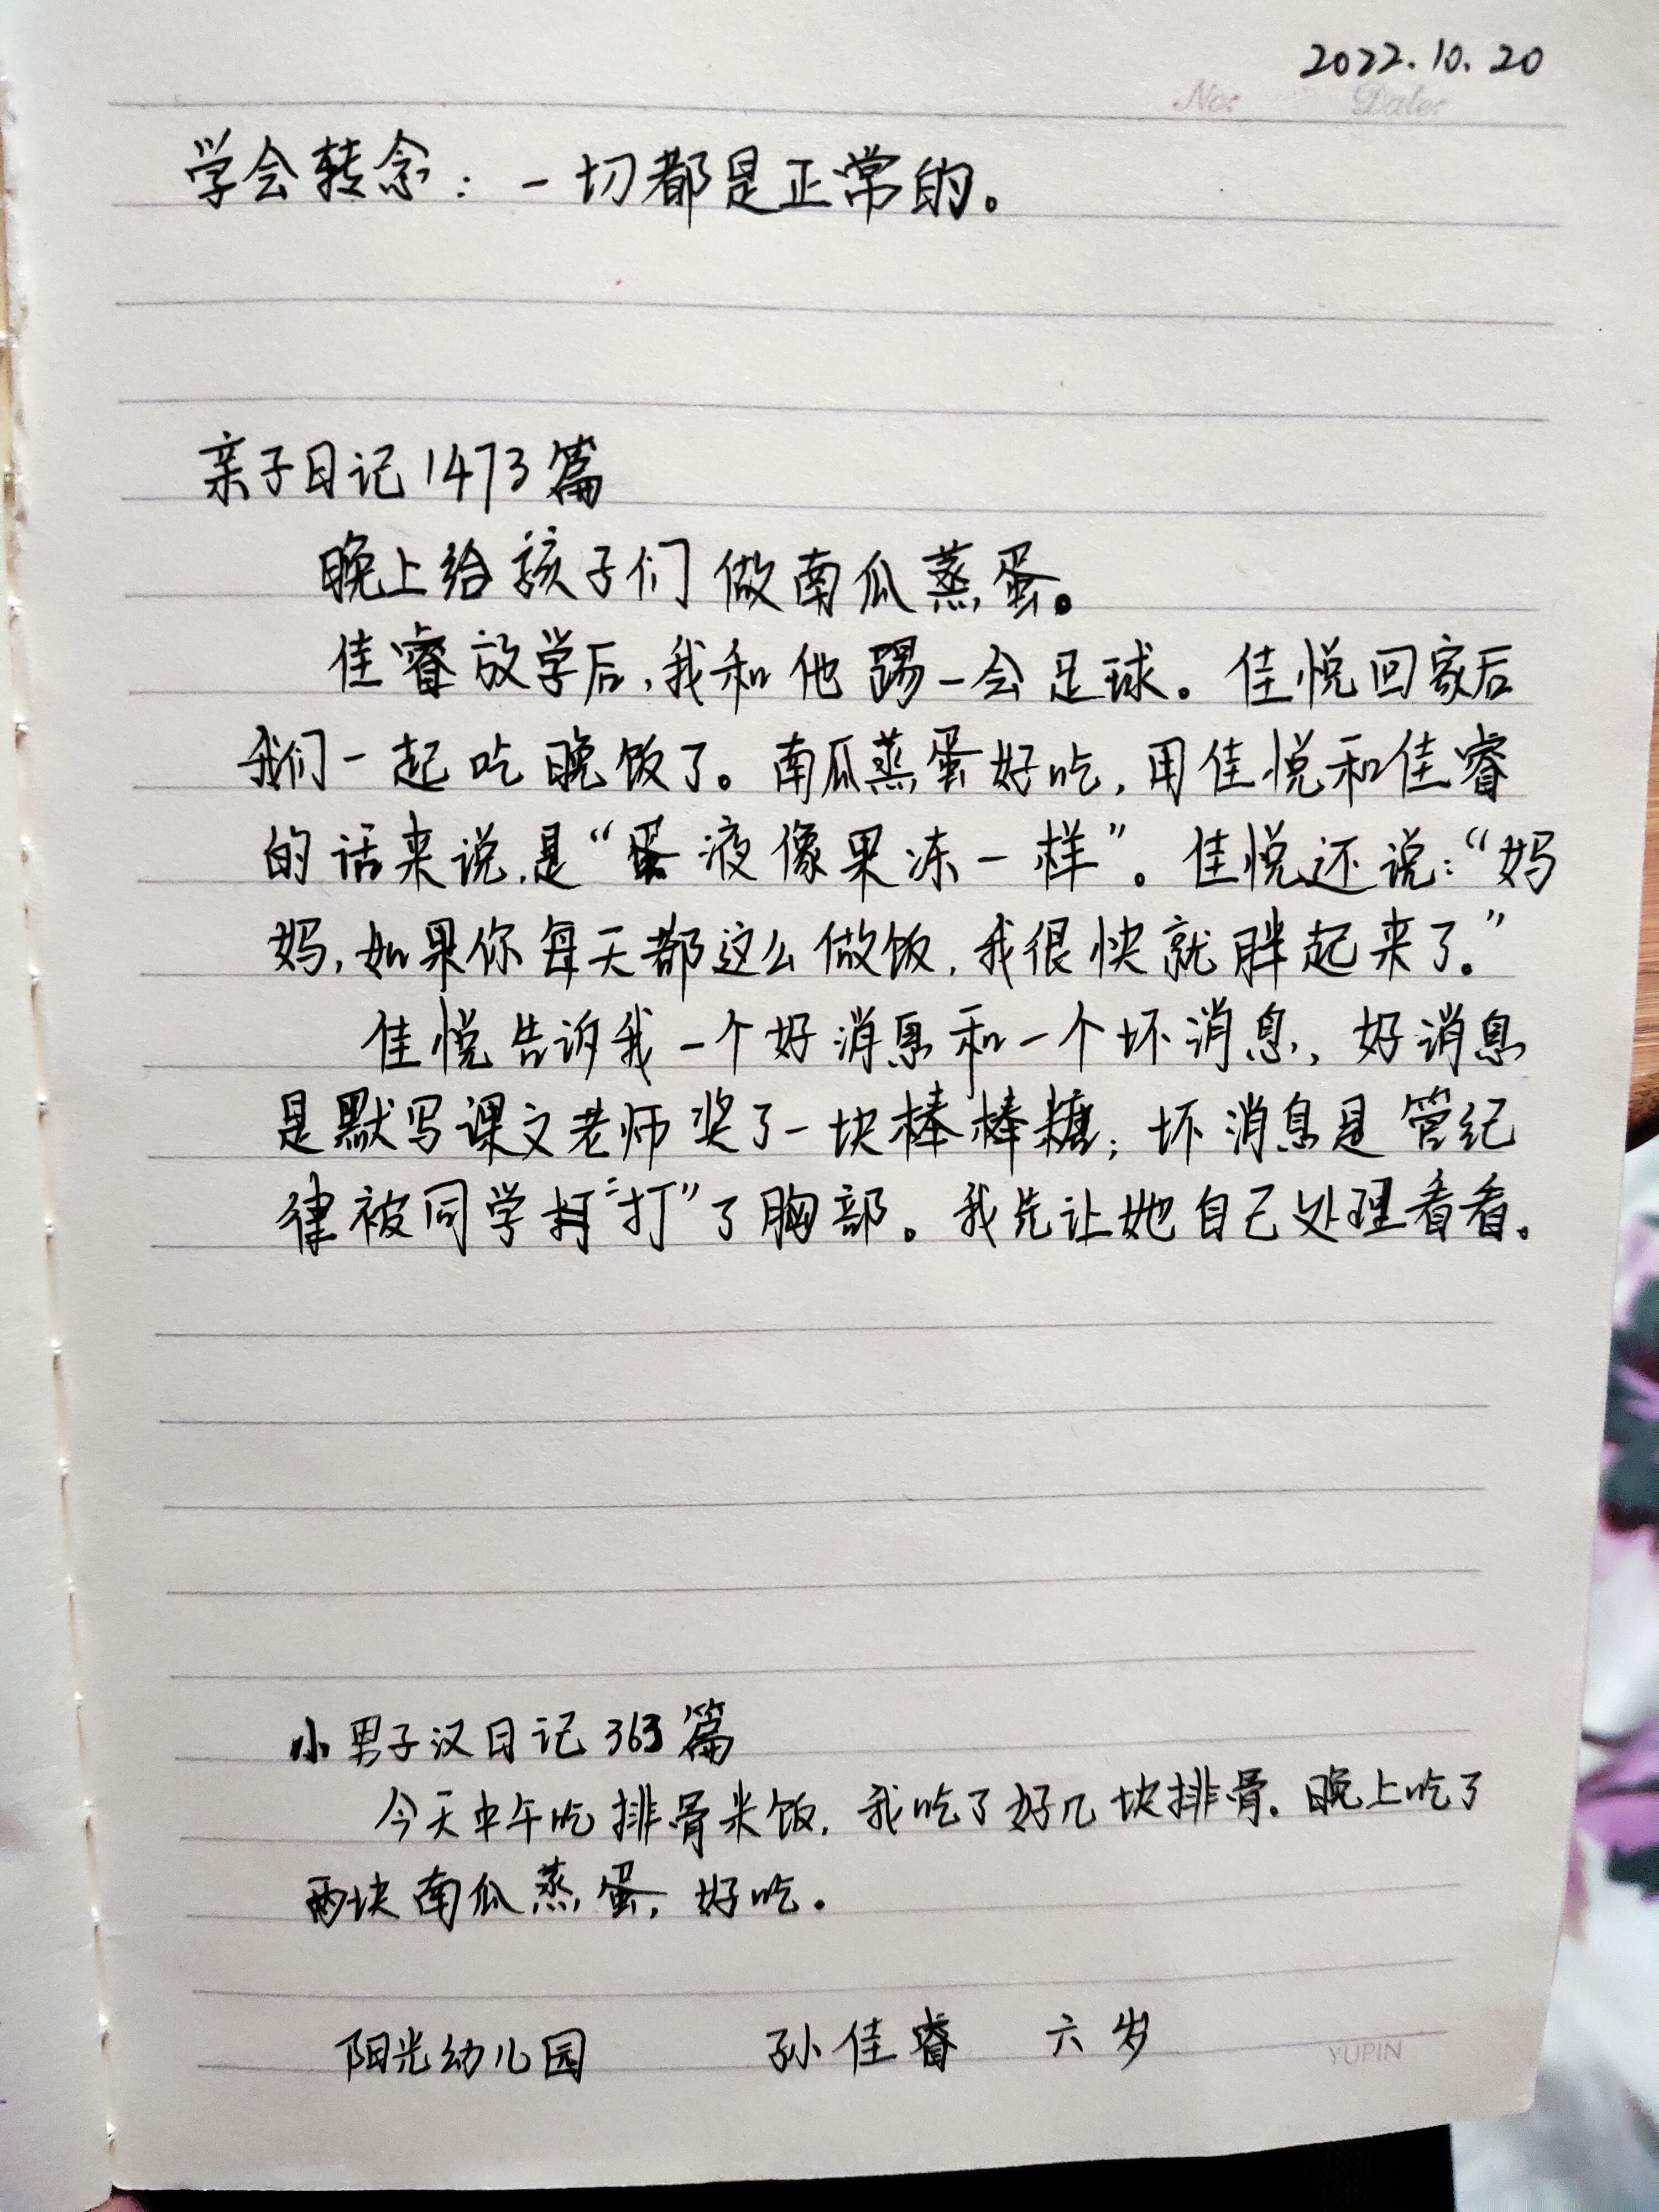 2022.10.20
No: Date:
学会转念：一切都是正常的。
亲子日记1473篇
晚上给孩子们做南瓜蒸蛋。
佳睿放学后，我和他踢一会足球。佳悦回家后
我们一起吃晚饭了。南瓜蒸蛋好吃，用佳悦和佳睿
的话来说，是“蛋液像果冻一样”。佳悦还说：“妈
妈，如果你每天都这么做饭，我很快就胖起来了。”
佳悦告诉我一个好消息和一个坏消息，好消息
是默写课文老师奖了一块棒棒糖；坏消息是管纪
律被同学“打”了胸部。我先让她自己处理看看。
小男子汉日记363篇
今天中午吃排骨米饭，我吃了好几块排骨。晚上吃了
两块南瓜蒸蛋，好吃。
阳光幼儿园 孙佳睿 六岁
YUPIN